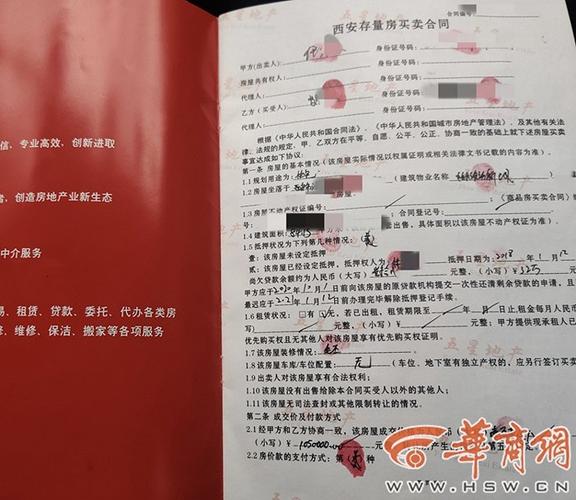 合同编号:
西安存量房买卖合同
甲方(出卖人):
身份证号码:
房屋共有权人:
身份证号码:
代理人:
身份证号码:
乙方(买受人):
身份证号码:
代理人:
身份证号码:
根据《中华人民共和国合同法》、《中华人民共和国城市房地产管理法》、及其他有关法
律、法规的规定,甲、乙双方在平等、自愿、公平、公正、协商一致的基础上就下述房屋买卖
事宜达成如下协议:
第一条 房屋的基本情况(该房屋实际情况以权属证明或相关法律文书记载的内容为准)。
1.1 规划用途为:
1.2 房屋坐落于
(建筑物业名称
1.3 房屋不动产权证编号:
《商品房买卖合同》编
; 合同登记号:
1.4 建筑面积:
出售,具体面积以该房屋不动产权证为准)。
1.5 抵押状况为下列第几种情况:(贰)
壹: 该房屋未设定抵押
贰: 该房屋已经设定抵押,抵押权人为:
抵押日期为: 2018 年 1 月 12
尚欠贷款余额约为人民币(大写)
元整,(小写)
元整,
甲方应于2020年10月1日前向该房屋的原贷款机构提交一次性还清剩余贷款的申请,且
最迟应于2021年1月12日前办理完毕解除抵押登记手续。
1.6 租赁状况: □有☑无。若已出租,租赁期限至
年
月
日止,租金每月人民币
元整,(小写)
元整,甲方提供现承租人已
优先购买权且无其他人对该房屋享有优先购买权证明。
1.7 该房屋装修情况:
1.8 该房屋车库/车位配置: 无
(车位、地下室有独立产权的,应另行签订买卖
1.9 出卖人对该房屋享有合法权利;
1.10 该房屋没有出售给除本合同买受人以外的其他人;
1.11 该房屋无司法查封或其他限制转让的情况。
第二条 成交价及付款方式
2.1 经甲方和乙方协商一致,该房屋成交价
(小写)¥ 1050000.00
2.2 房价款的支付方式: 第(贰)种
信,专业高效,创新进取
者,创造房地产业新生态
中介服务
易、租赁、贷款、委托、代办各类房
修、维修、保洁、搬家等各项服务
五星地产
华商网
WWW.HSW.CN